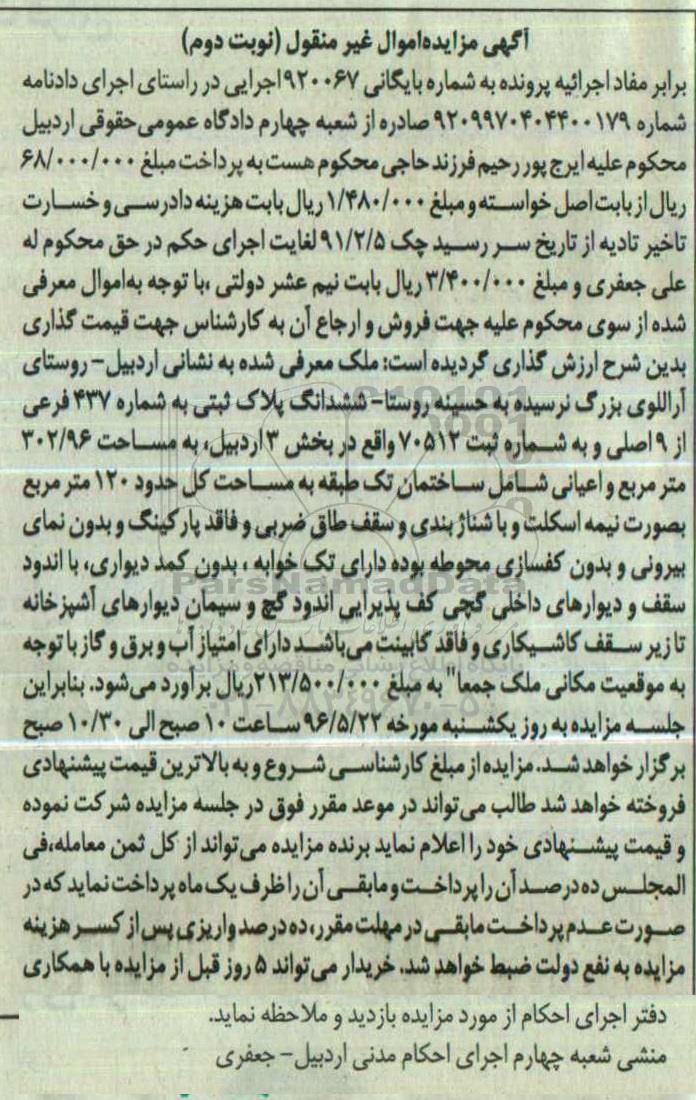 آگهی مزایده‌اموال غیر منقول (نوبت دوم)
برابر مفاد اجرائیه پرونده به شماره بایگانی ۹۲۰۰۶۷اجرایی در راستای اجرای دادنامه
شماره ۹۲۰۹۹۷۰۴۰۴۴۰۰۱۷۹ صادره از شعبه چهارم دادگاه عمومی‌حقوقی اردبیل
محکوم علیه ایرج پور رحیم فرزند حاجی محکوم هست به پرداخت مبلغ ۶۸/۰۰۰/۰۰۰
ریال از بابت اصل خواسته و مبلغ ۱/۴۸۰/۰۰۰ ریال بابت هزینه دادرسی و خسارت
تاخیر تادیه از تاریخ سر رسید چک ۹۱/۲/۵ لغایت اجرای حکم در حق محکوم له
علی جعفری و مبلغ ۳/۴۰۰/۰۰۰ ریال بابت نیم عشر دولتی ،با توجه به‌اموال معرفی
شده از سوی محکوم علیه جهت فروش و ارجاع آن به کارشناس جهت قیمت گذاری
بدین شرح ارزش گذاری گردیده است: ملک معرفی شده به نشانی اردبیل- روستای
آراللوی بزرگ نرسیده به حسینه روستا- ششدانگ پلاک ثبتی به شماره ۴۳۷ فرعی
از ۹ اصلی و به شماره ثبت ۷۰۵۱۲ واقع در بخش ۳ اردبیل، به مساحت ۳۰۲/۹۶
متر مربع و اعیانی شامل ساختمان تک طبقه به مساحت کل حدود ۱۲۰ متر مربع
بصورت نیمه اسکلت و با شناژ بندی و سقف طاق ضربی و فاقد پارکینگ و بدون نمای
بیرونی و بدون کفسازی محوطه بوده دارای تک خوابه ، بدون کمد دیواری، با اندود
سقف و دیوارهای داخلی گچی کف پذیرایی اندود گچ و سیمان دیوارهای آشپزخانه
تا زیر سقف کاشیکاری و فاقد کابینت می‌باشد دارای امتیاز آب و برق و گاز با توجه
به موقعیت مکانی ملک جمعا" به مبلغ ۲۱۳/۵۰۰/۰۰۰ریال برآورد می‌شود. بنابراین
جلسه مزایده به روز یکشنبه مورخه ۹۶/۵/۲۲ ساعت ۱۰ صبح الی ۱۰/۳۰ صبح
برگزار خواهد شد. مزایده از مبلغ کارشناسی شروع و به بالاترین قیمت پیشنهادی
فروخته خواهد شد طالب می‌تواند در موعد مقرر فوق در جلسه مزایده شرکت نموده
و قیمت پیشنهادی خود را اعلام نماید برنده مزایده می‌تواند از کل ثمن معامله،فی
المجلس ده درصد آن را پرداخت و مابقی آن را ظرف یک ماه پرداخت نماید که در
صورت عدم پرداخت مابقی در مهلت مقرر، ده درصد واریزی پس از کسر هزینه
مزایده به نفع دولت ضبط خواهد شد. خریدار می‌تواند ۵ روز قبل از مزایده با همکاری
دفتر اجرای احکام از مورد مزایده بازدید و ملاحظه نماید.
منشی شعبه چهارم اجرای احکام مدنی اردبیل- جعفری
ParsNamadData